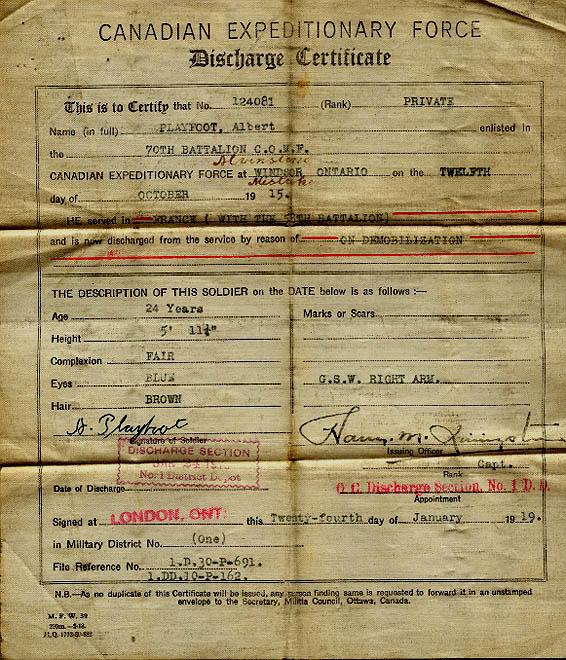 CANADIAN EXPEDITIONARY FORCE
Discharge Certificate
This is to Certify that No. 124081 (Rank) PRIVATE
Name (in full) PLAYFOOT, Albert enlisted in
the 70TH BATTALION C.O.M.F.
Alvinston
CANADIAN EXPEDITIONARY FORCE at WINDSOR ONTARIO on the TWELFTH
Mistake
day of OCTOBER 19 15.
HE served in FRANCE ( WITH THE BATTALION)
and is now discharged from the service by reason of ON DEMOBILIZATION
THE DESCRIPTION OF THIS SOLDIER on the DATE below is as follows :—
Age 24 Years Marks or Scars
Height 5' 11¼"
Complexion FAIR
Eyes BLUE G.S.W. RIGHT ARM.
Hair BROWN
A. Playfoot Harry. M. Livingston
Signature of Soldier Issuing Officer
DISCHARGE SECTION
No. 1 District Depot
Capt.
Rank
Date of Discharge O.C. Discharge Section, No. 1 D.D.
Appointment
Signed at LONDON, ONT: this Twenty-fourth day of January 19 19.
in Military District No. (One)
File Reference No. 1.D.30-P-691.
1.DD.10-P-162.
N.B.—As no duplicate of this Certificate will be issued, any person finding same is requested to forward it in an unstamped
envelope to the Secretary, Militia Council, Ottawa, Canada.
M. F. W. 39